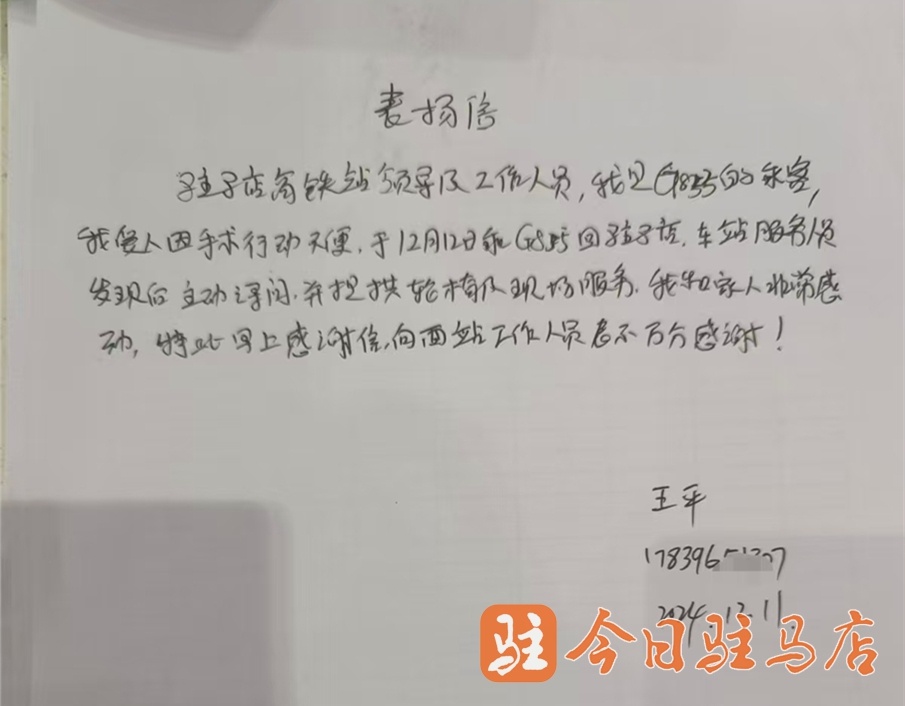 表扬信
驻马店高铁站领导及工作人员，我是G8355的乘客，
我爱人因手术行动不便，于12月12日乘G8355回驻马店，车站服务人员
发现后主动询问，并提供轮椅及现场服务。我和家人非常感
动，特此写上感谢信，向西站工作人员表示万分感谢！
王平
178396
2024.12.11
驻 今日驻马店